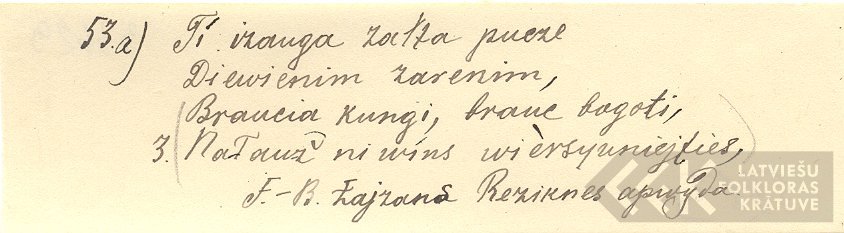 53.a) Tí izauga załta pucze
Diewienim zarenim,
Braucia kungi, brauc bogoti,
3. Nałauž ni wins wièrsyuniejties,
F.-B. Łajzans Reziknes apwyda.
LATVIEŠU
FOLKLORAS
KRĀTUVE